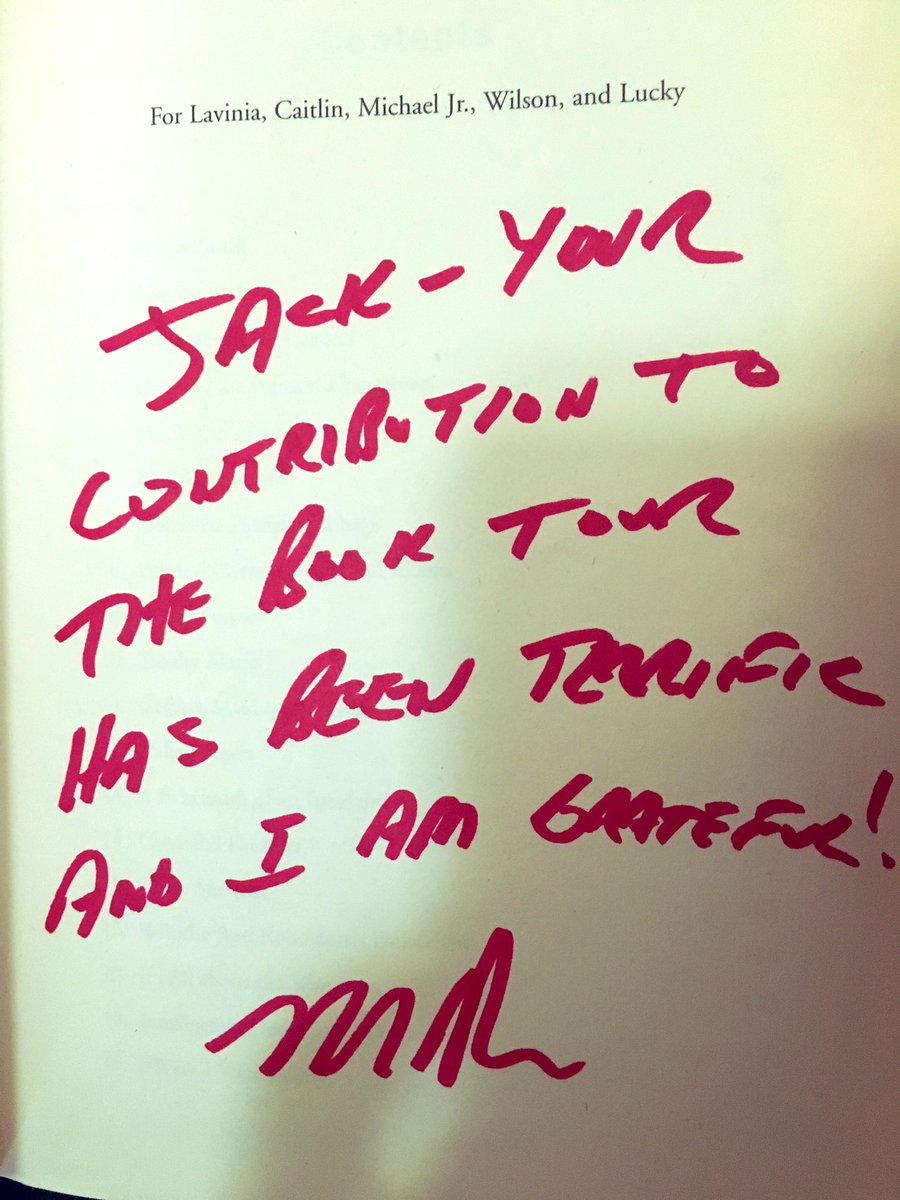 For Lavinia, Caitlin, Michael Jr., Wilson, and Lucky
JACK - YOUR
CONTRIBUTION TO
THE BOOK TOUR
HAS BEEN TERRIFIC
AND I AM GRATEFUL!